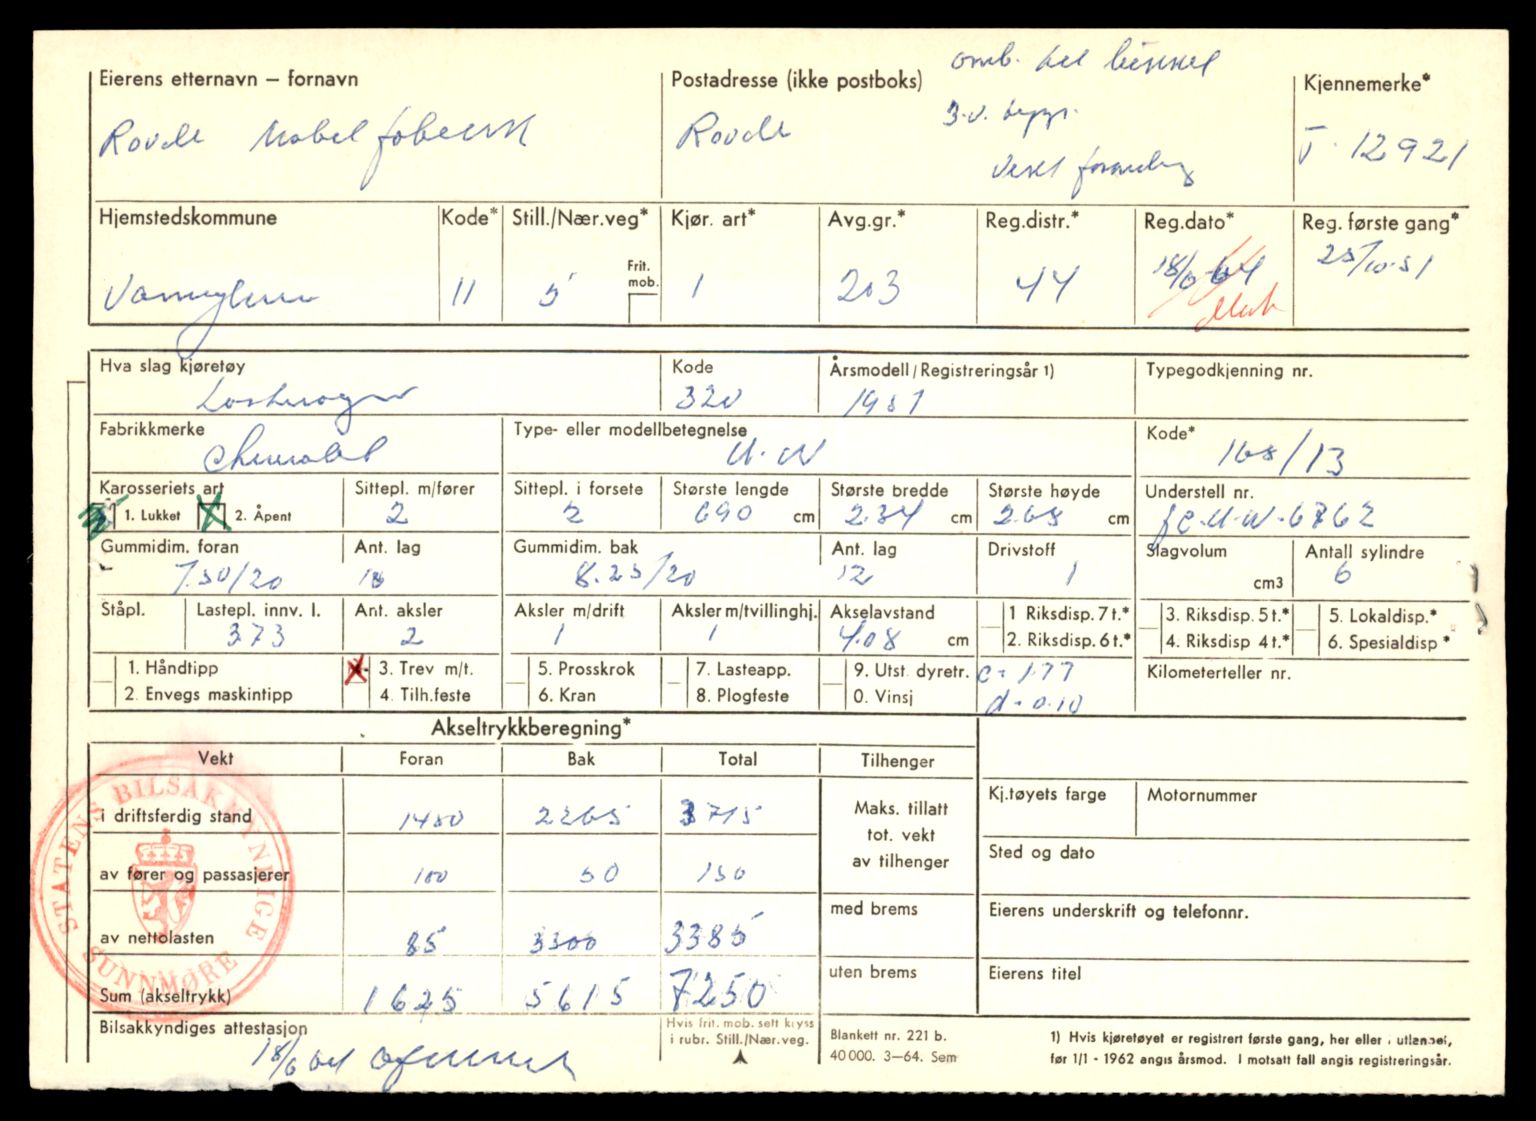 omb. del
3.v.
Eierens etternavn – fornavn Postadresse (ikke postboks) Kjennemerke*
Rovde Møbelfabrikk Rovde T-12921
Hjemstedskommune Kode* Still./Nær.veg* Kjør. art* Avg.gr.* Reg.distr.* Reg.dato* Reg. første gang*
Frit. mob.
Vanylven 11 5 1 203 44 18/6-64 25/10-51
Hva slag kjøretøy Kode Årsmodell/Registreringsår 1) Typegodkjenning nr.
Lastevogn 320 1951
Fabrikkmerke Type- eller modellbetegnelse Kode*
Chevrolet U.W 168/13
Karosseriets art Sittepl. m/fører Sittepl. i forsete Største lengde Største bredde Største høyde Understell nr.
1. Lukket X 2. Åpent 2 2 690 cm 2.34 cm 2.65 cm
Gummidim. foran Ant. lag Gummidim. bak Ant. lag Drivstoff Slagvolum Antall sylindre
7.50/20 8.25/20 12 1 cm3 6
Ståpl. Lastepl. innv. l. Ant. aksler Aksler m/drift Aksler m/tvillinghj. Akselavstand 1 Riksdisp. 7 t.* 3. Riksdisp. 5 t.* 5. Lokaldisp.*
373 2 1 1 4.08 cm 2. Riksdisp. 6 t.* 4. Riksdisp 4 t.* 6. Spesialdisp *
1. Håndtipp X 3. Trev m/t. 5. Prosskrok 7. Lasteapp. 9. Utst. dyretr. c = 1.77 Kilometerteller nr.
2. Envegs maskintipp 4. Tilh.feste 6. Kran 8. Plogfeste 0. Vinsj d = 0.10
Akseltrykkberegning*
Vekt Foran Bak Total Tilhenger
i driftsferdig stand 1450 2265 3715 Maks. tillatt tot. vekt av tilhenger Kj.tøyets farge Motornummer
av fører og passasjerer 100 50 150 Sted og dato
av nettolasten 85 3300 3385 med brems Eierens underskrift og telefonnr.
Sum (akseltrykk) 1625 5615 7250 uten brems Eierens titel
STATENS BILSAKKYNDIGE
SUNNMØRE
Bilsakkyndiges attestasjon Hvis frit. mob. sett kryss i rubr. Still./Nær.veg.
18/6
Blankett nr. 221 b.
40 000. 3–64. Sem
1) Hvis kjøretøyet er registrert første gang, her eller i utlandet,
før 1/1 - 1962 angis årsmod. I motsatt fall angis registreringsår.